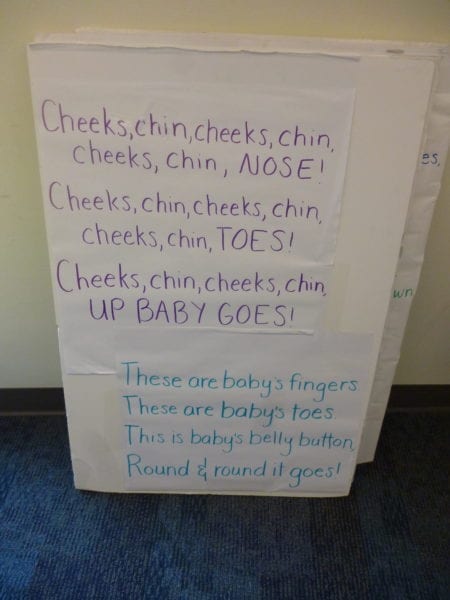 Cheeks, chin, cheeks, chin,
cheeks, chin, NOSE!
Cheeks, chin, cheeks, chin,
cheeks, chin, TOES!
Cheeks, chin, cheeks, chin,
UP BABY GOES!
These are baby's fingers
These are baby's toes
This is baby's belly button,
Round & round it goes!
es,
wn